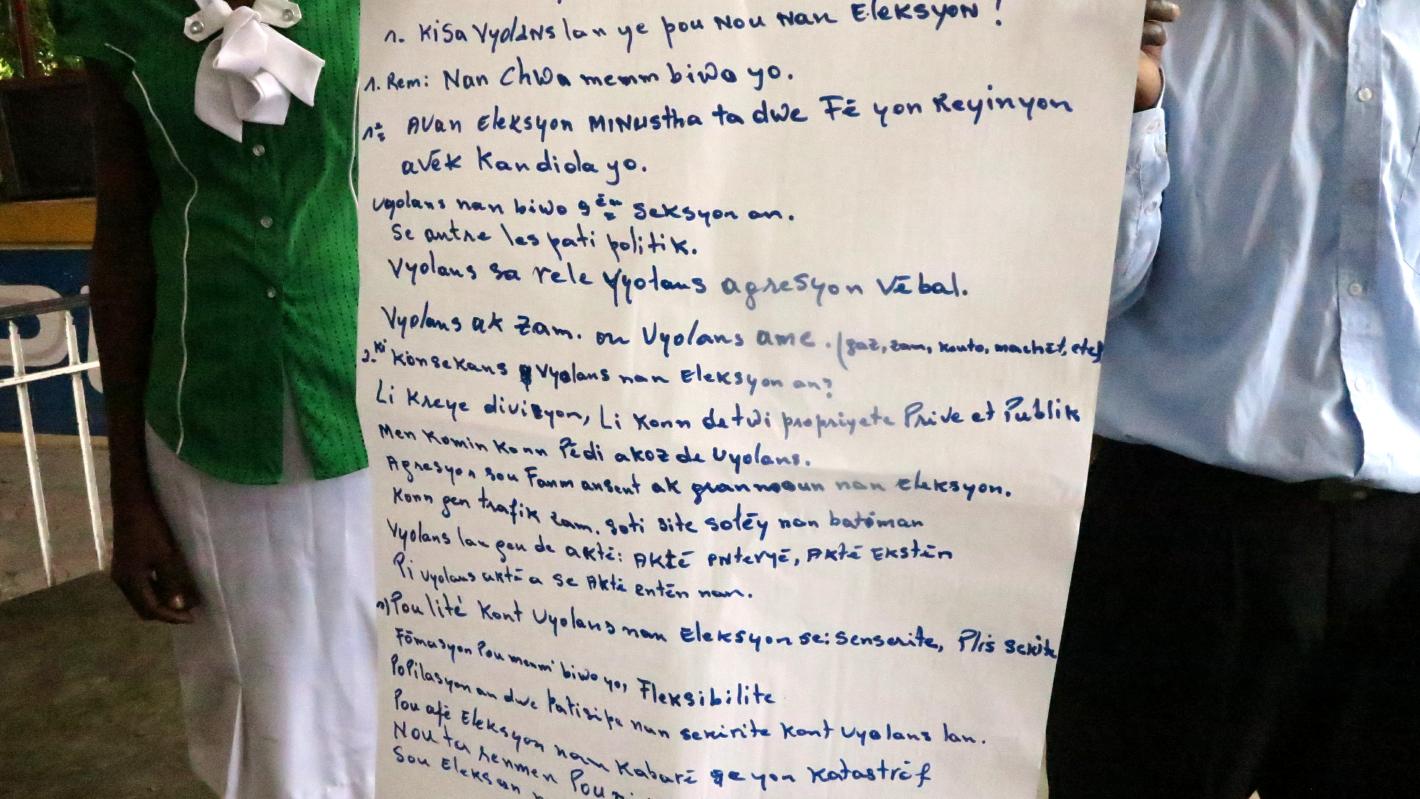 1. Kisa Vyolans lan ye pou Nou Nan Eleksyon !
1. Rem: Nan Chwa memm biwo yo.
AVan Eleksyon MINUstha ta dwe Fē yon Reyinyon
avēk Kandida yo.
Vyolans nan biwo 9 èm Seksyon an.
Se antre les pati politik.
Vyolans sa rele Vyolans agresyon Vēbal.
Vyolans ak Zam. ou Vyolans ame. (gaz, zam, kouto, machēt, etc)
2. Ki Konsekans Vyolans nan Eleksyon an?
Li Kreye divizyon, Li Konn detwi propriyete Prive et Publik
Men Komin Konn Pēdi akoz de Vyolans.
Agresyon sou Fanm ansent ak granmoun nan Eleksyon.
Konn gen trafik zam. soti site solēy nan batiman
Vyolans lan gen de aktē: AKtē ENteryē, AKtē EKstēn
Pi vyolans aktē a se AKtē entēn nan.
Pou lité Kont Vyolans nan Eleksyon se: Senserite, Plis sekirite
Fōmasyon Pou memm biwo yo, Fleksibilite
Popilasyon an dwe Patisipe nan sekirite Kont Vyolans lan.
Pou afē Eleksyon nan Kabarē se yon Katastrēf
Nou ta renmen Pou
Sou Eleksyon